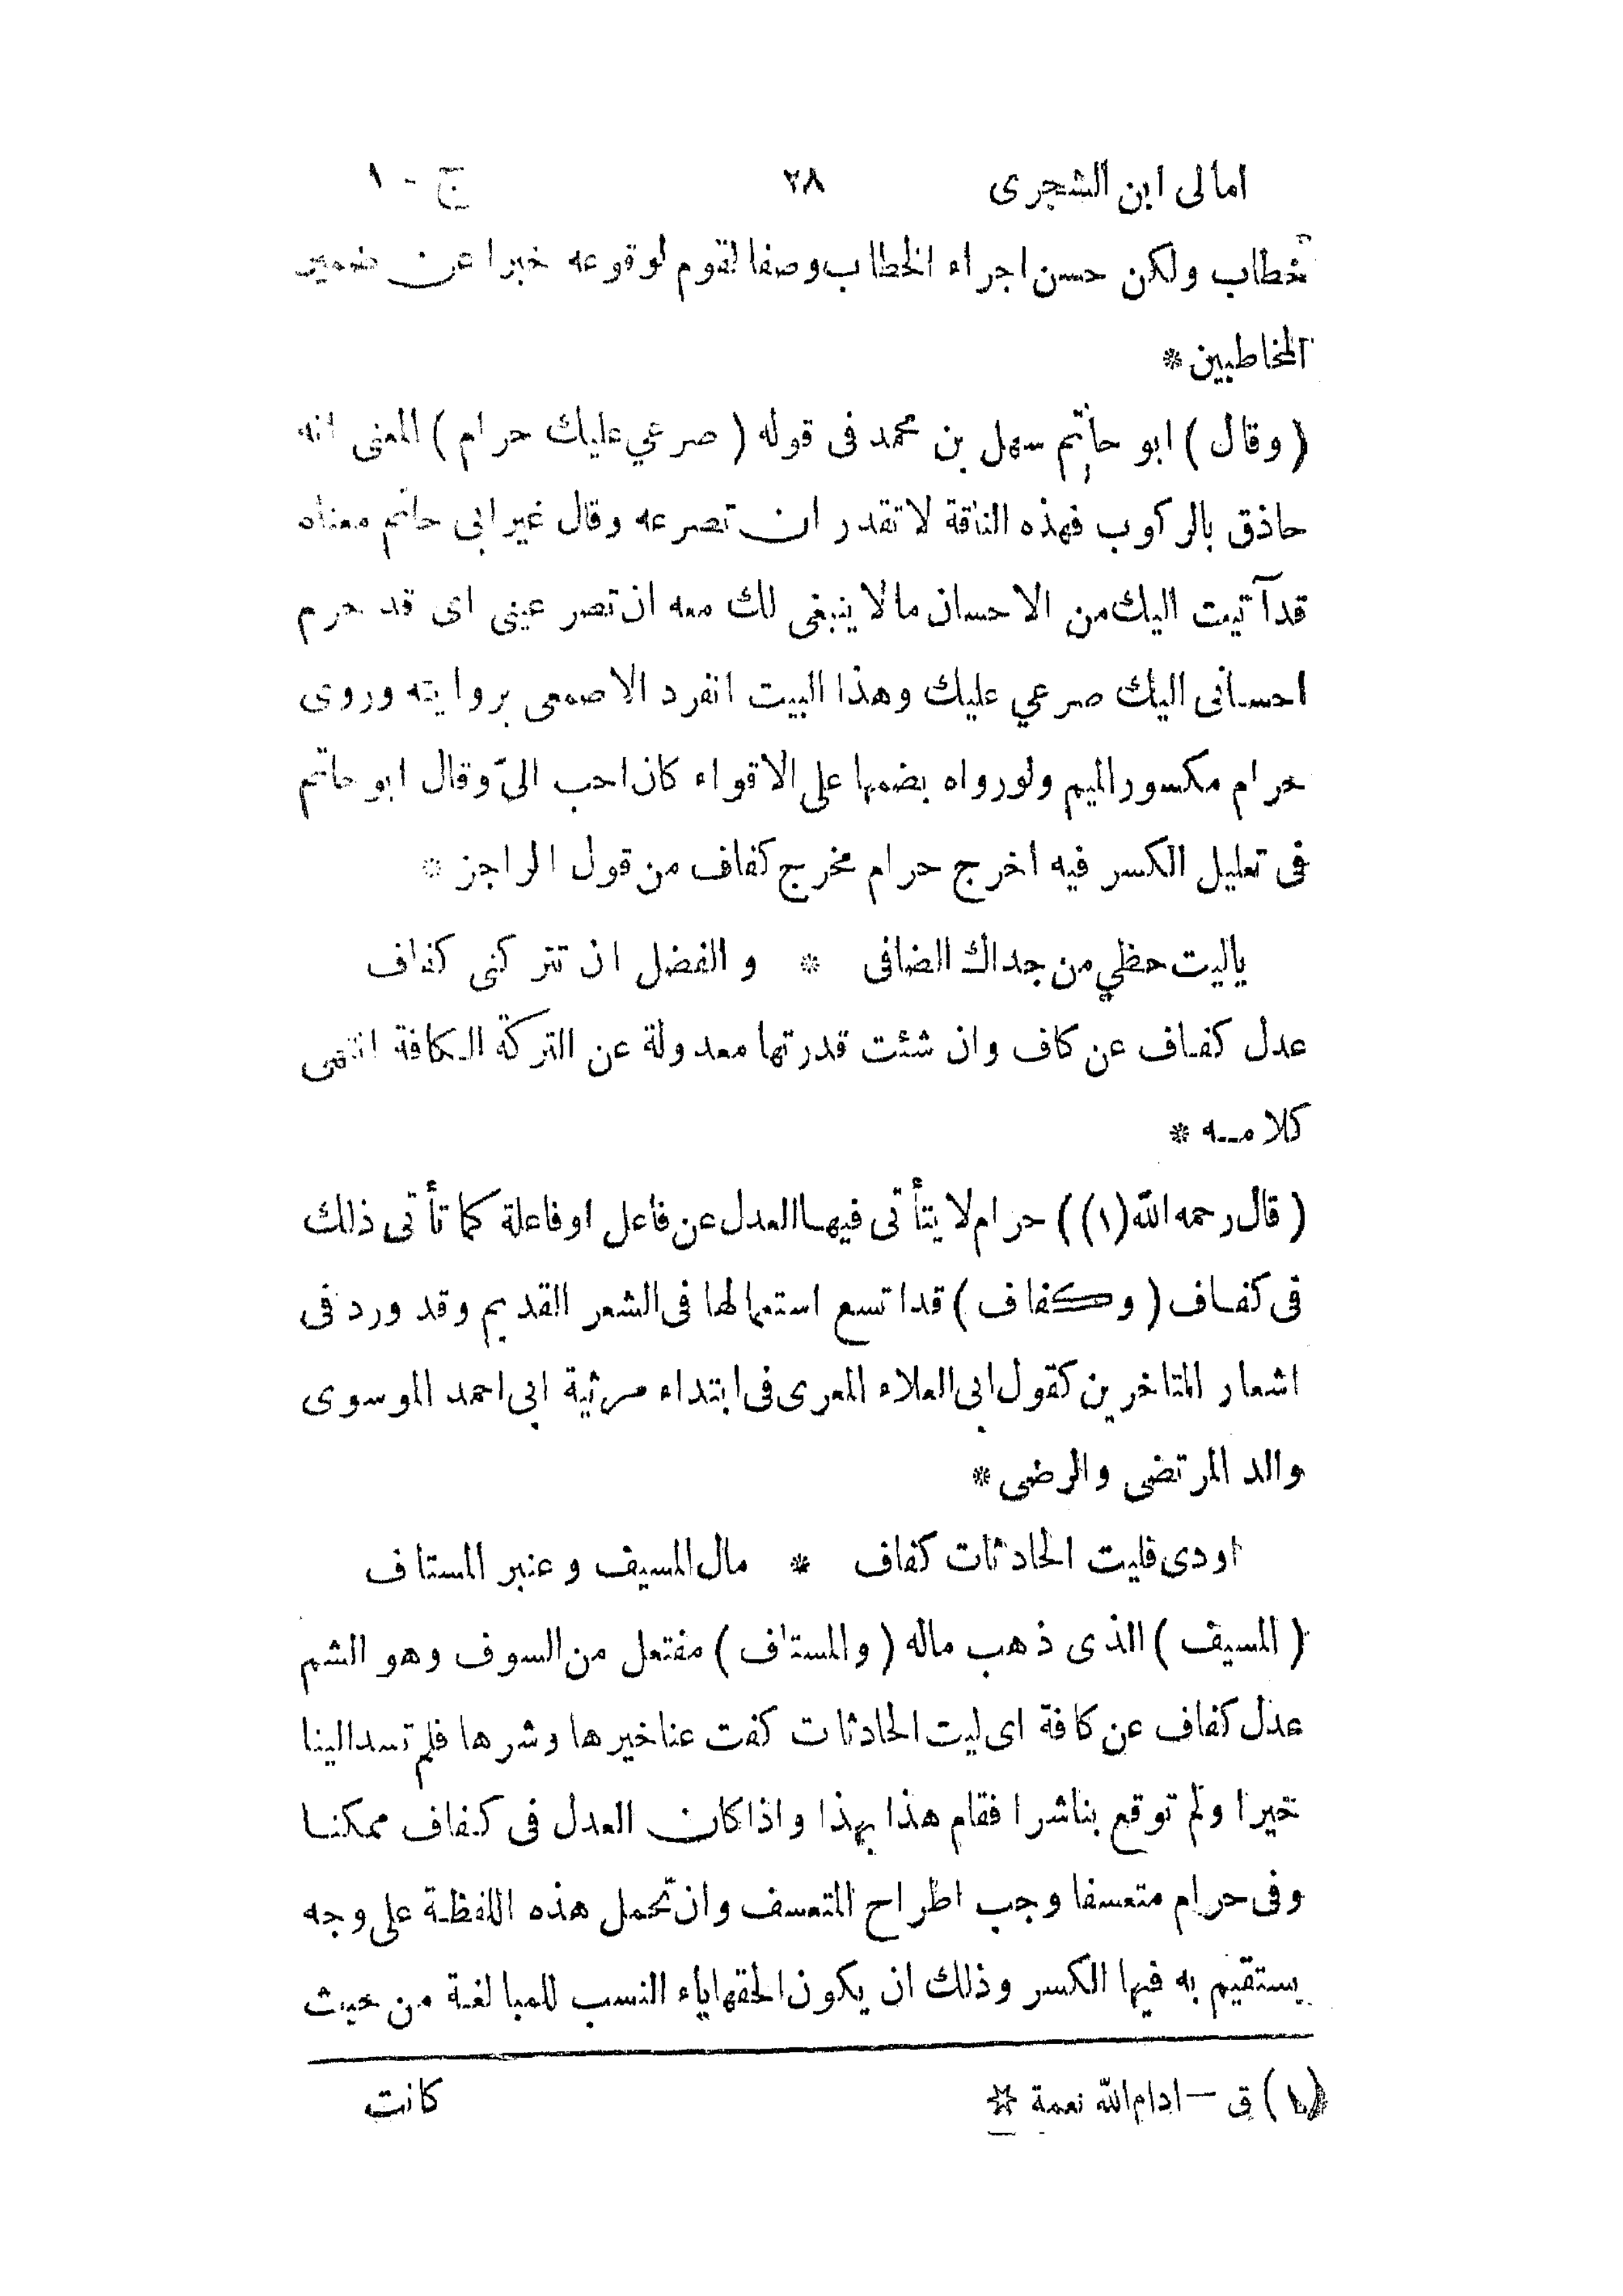 امالى ابن الشجرى ٢٨ ج - ١
خطاب ولكن حسن اجراء الخطاب وصفا لقوم لوقوعه خبرا عن ضمير
المخاطبين *
( وقال ) ابو حاتم سهل بن محمد فى قوله ( صرعي عليك حرام ) المعنى انه
حاذق بالركوب فهذه الناقة لا تقدر ان تصرعه وقال غير ابى حاتم معناه
قد آتيت اليك من الاحسان ما لا ينبغى لك معه ان تصرعينى اى قد حرم
احسانى اليك صرعي عليك وهذا البيت انفرد الاصمعى بروايته وروى
حرام مكسور الميم ولو رواه بضمها على الاقواء كان احب الىّ وقال ابو حاتم
فى تعليل الكسر فيه اخرج حرام مخرج كفاف من قول الراجز *
ياليت حظي من جداك الضافى * و الفضل ان تتركنى كفاف
عدل كفاف عن كاف وان شئت قدرتها معدولة عن التركة الكافة انتهى
كلامه *
( قال رحمه الله (١) ) حرام لا يتأتى فيها العدل عن فاعل او فاعلة كما تأتى ذلك
فى كفاف ( وكفاف ) قد اتسع استعمالها فى الشعر القديم وقد ورد فى
اشعار المتاخرين كقول ابى العلاء المعرى فى ابتداء مرثية ابى احمد الموسوى
والد المرتضى والرضى *
اودى فليت الحادثات كفاف * مال المسيف و عنبر المستاف
( المسيف ) الذى ذهب ماله ( والمستاف ) مفتعل من السوف وهو الشم
عدل كفاف عن كافة اى ليت الحادثات كفت عنا خيرها وشرها فلم تسد الينا
خيرا ولم توقع بنا شرا فقام هذا بهذا واذا كان العدل فى كفاف ممكنا
وفى حرام متعسفا وجب اطراح التعسف وان تحمل هذه اللفظة على وجه
يستقيم به فيها الكسر وذلك ان يكون الحقها ياء النسب للمبالغة من حيث
(١) ق — ادام الله نعمة ☆ كانت